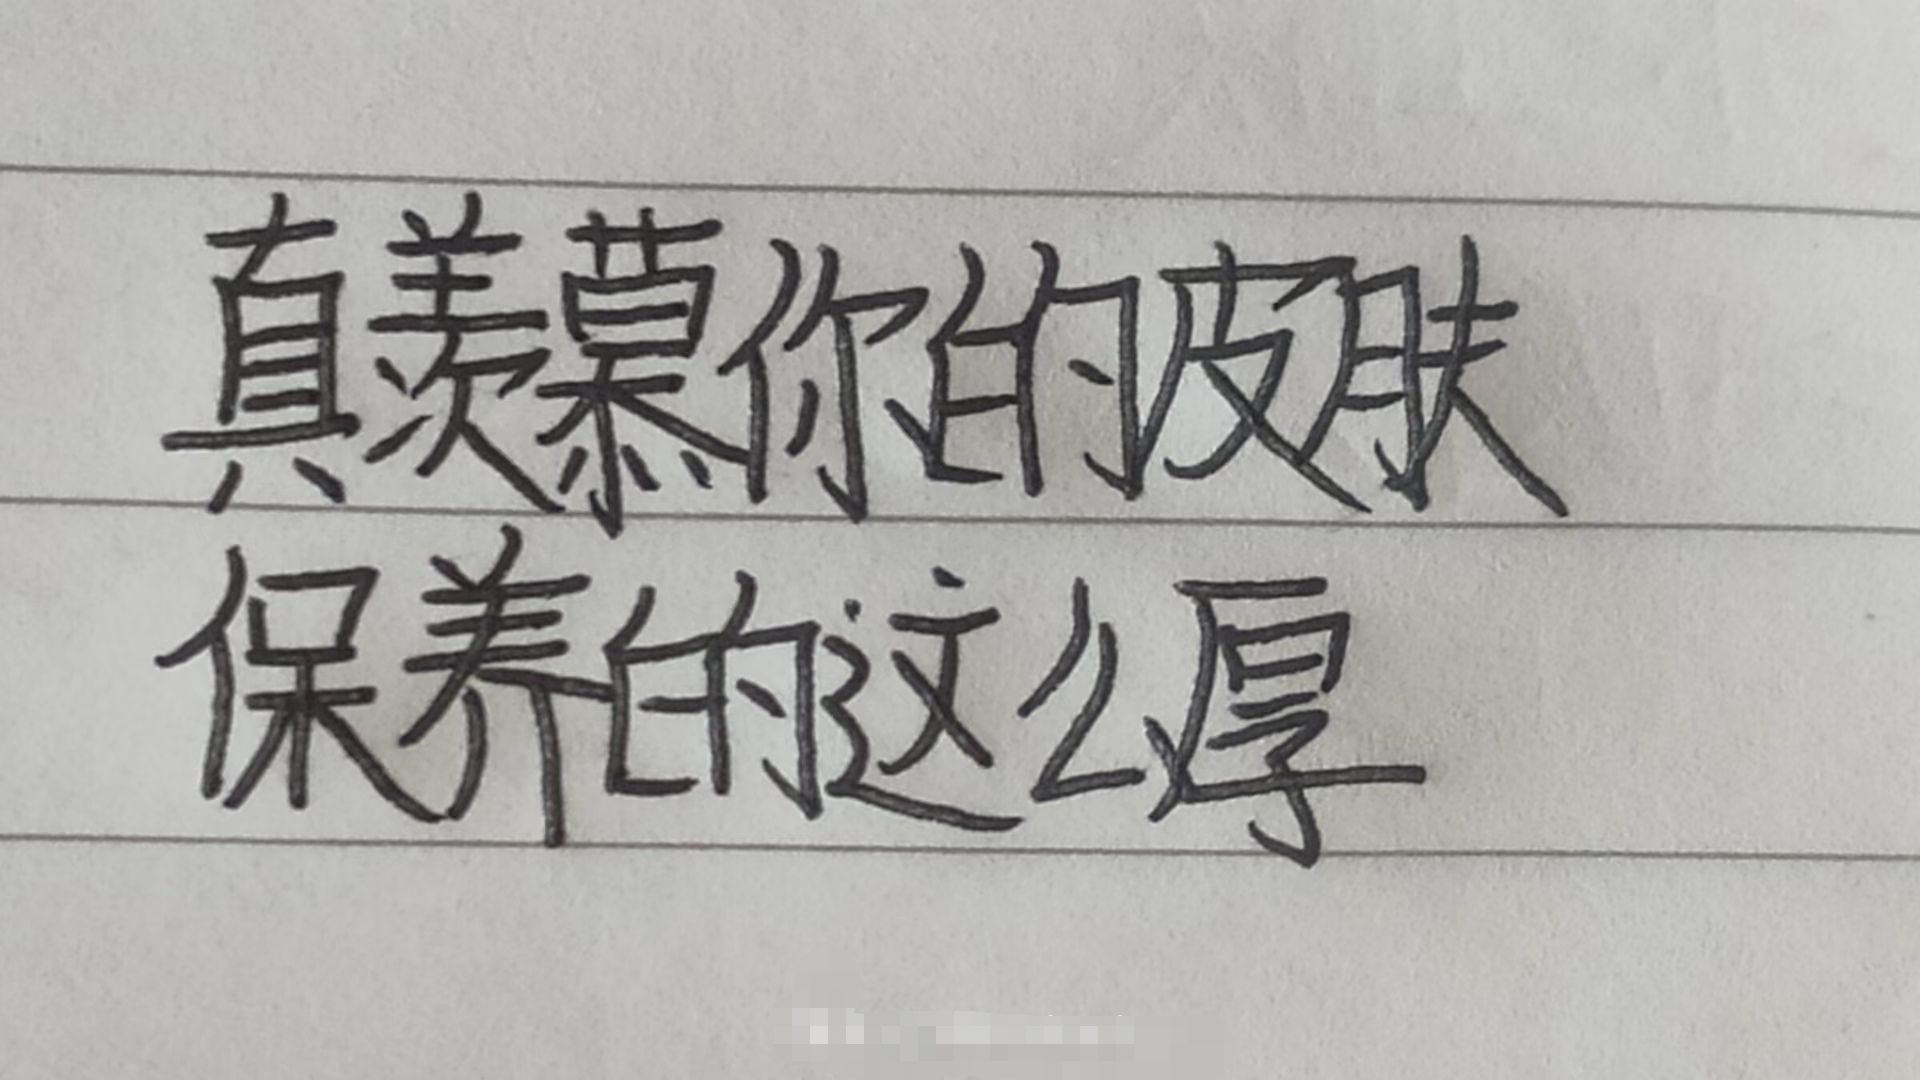 真羡慕你的皮肤
保养的这么厚